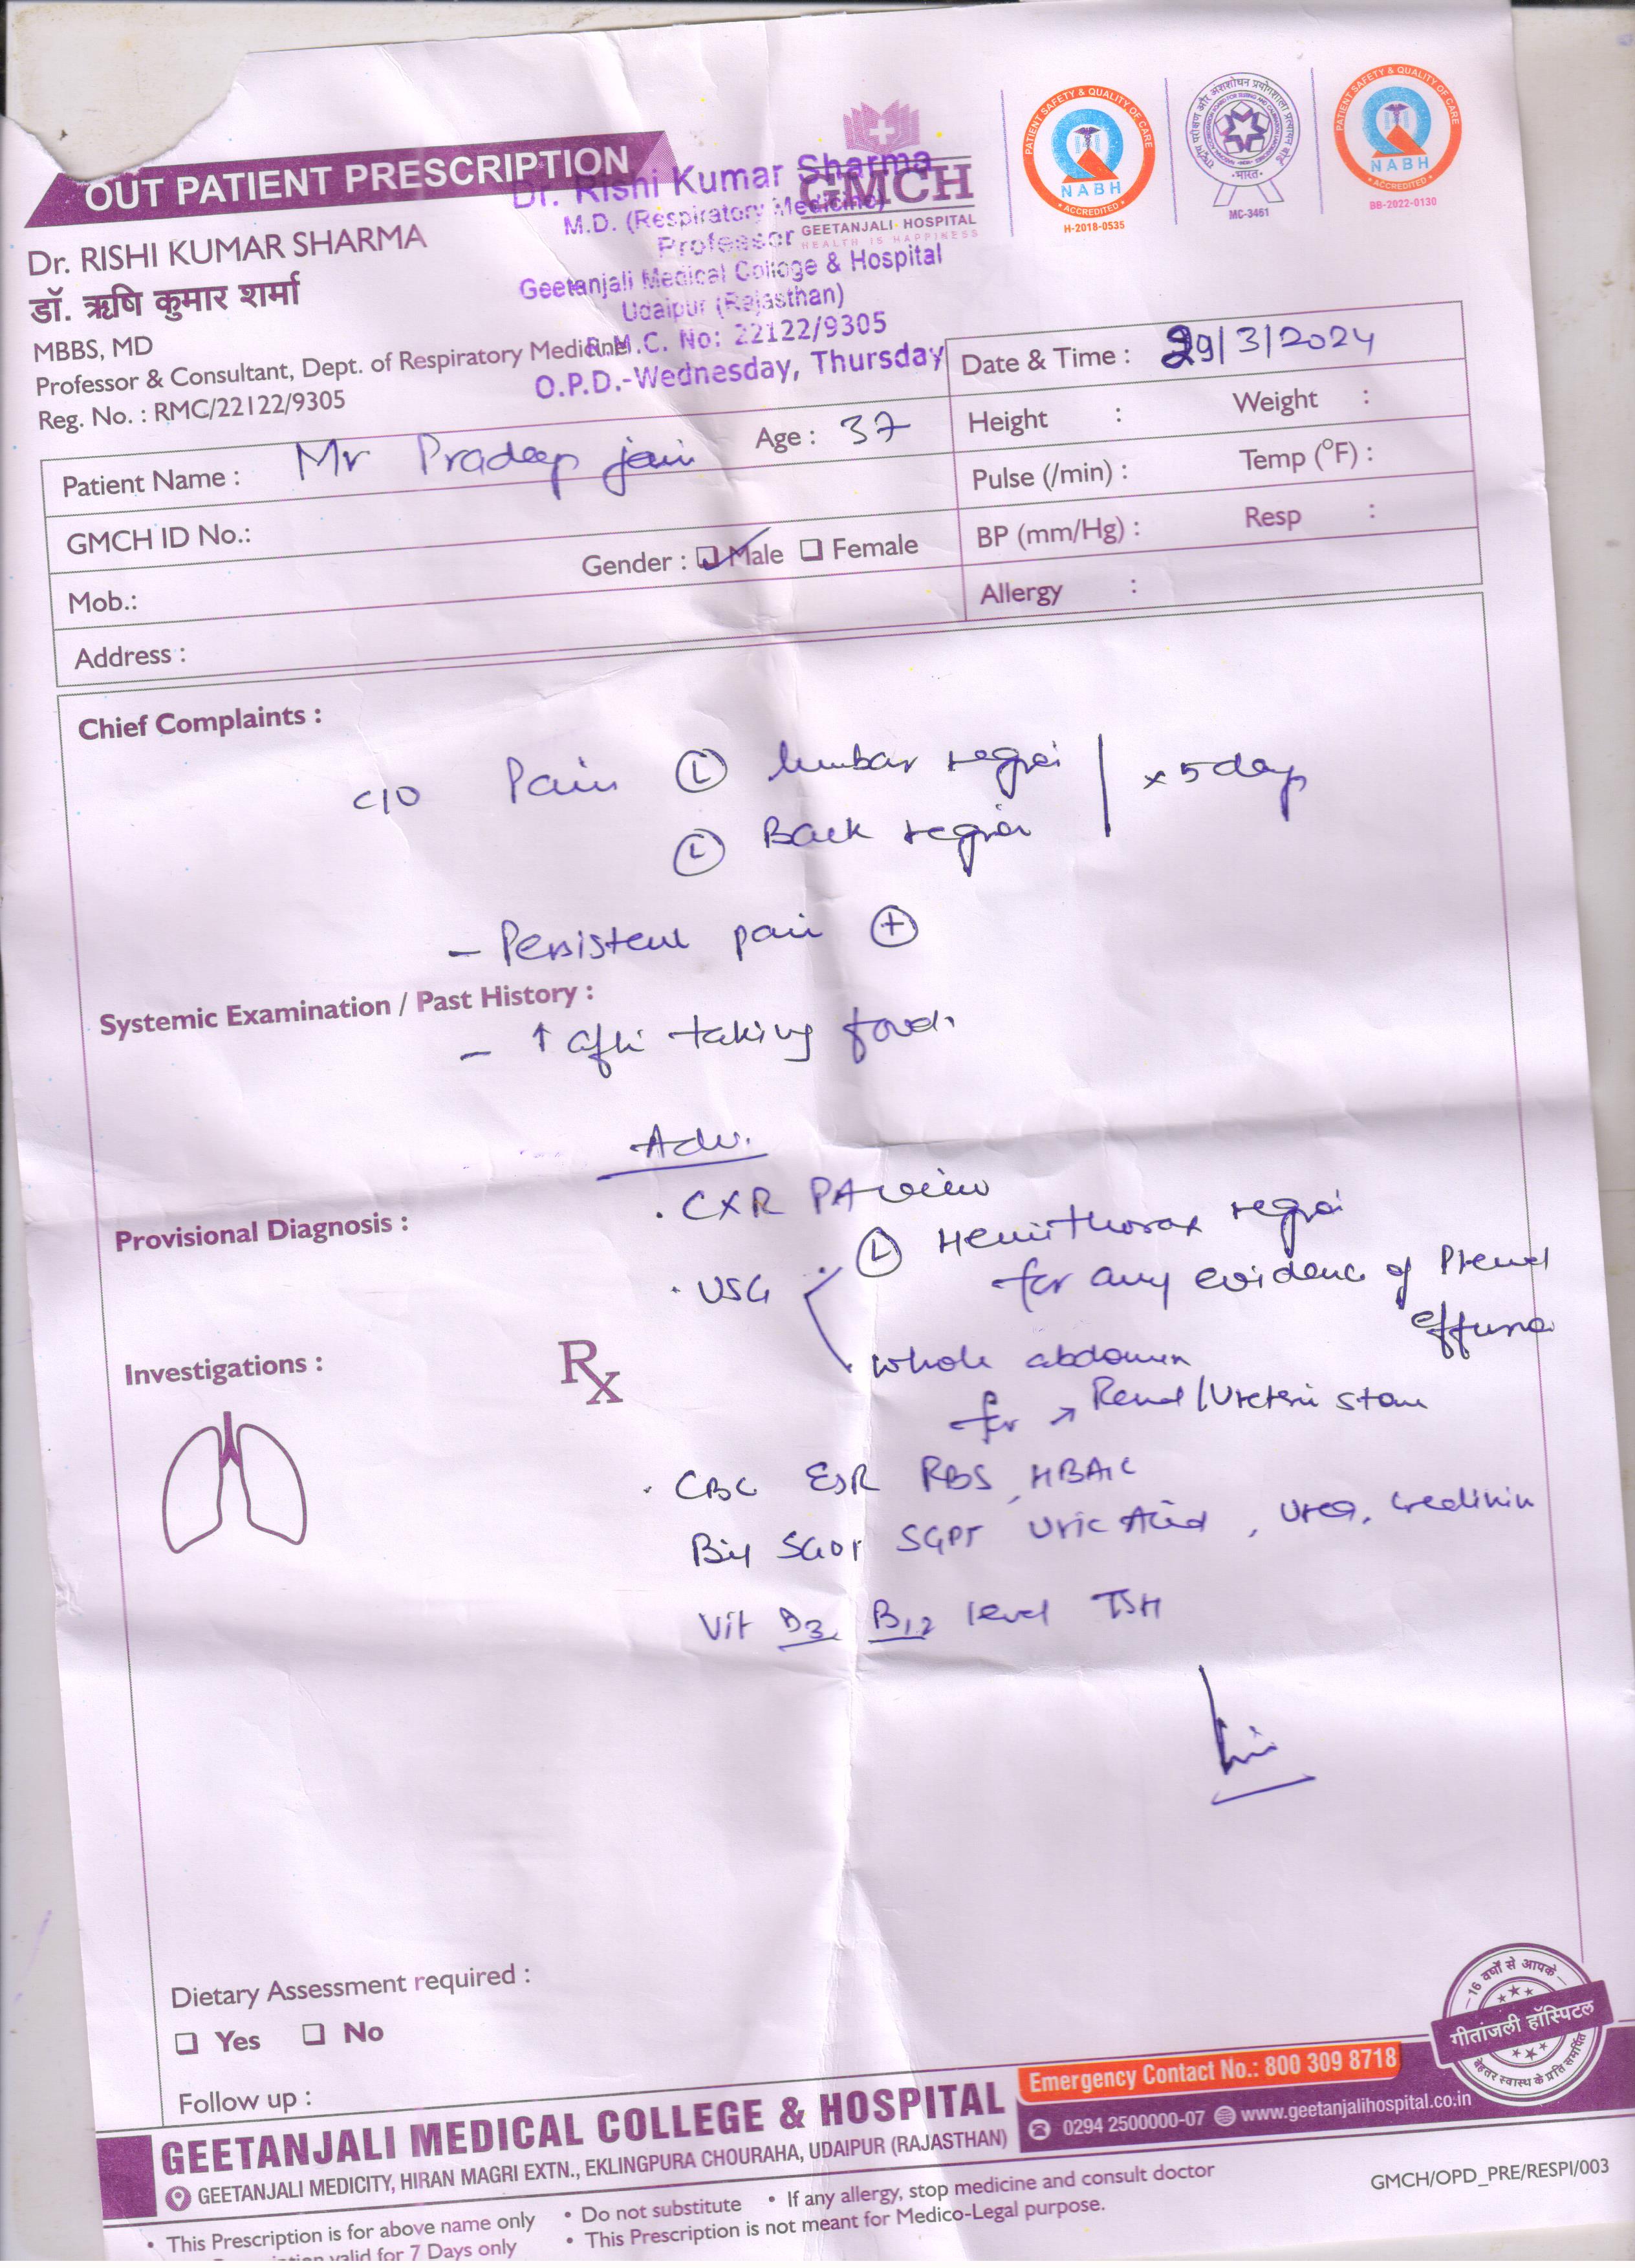 OUT PATIENT PRESCRIPTION
Dr. Rishi Kumar Sharma
M.D. (Respiratory Medicine)
Professor
Geetanjali Medical College & Hospital
Udaipur (Rajasthan)
R.M.C. No: 22122/9305
O.P.D.-Wednesday, Thursday
GMCH
GEETANJALI HOSPITAL
HEALTH IS HAPPINESS
PATIENT SAFETY & QUALITY OF CARE
NABH
ACCREDITED
H-2018-0535
भारत
MC-3461
PATIENT SAFETY & QUALITY OF CARE
NABH
ACCREDITED
BB-2022-0130
Dr. RISHI KUMAR SHARMA
डॉ. ऋषि कुमार शर्मा
MBBS, MD
Professor & Consultant, Dept. of Respiratory Medicine
Reg. No. : RMC/22122/9305
Date & Time : 29/3/2024
Patient Name : Mr Pradeep jain Age : 37
Height : Weight :
Pulse (/min) : Temp (°F) :
GMCH ID No.:
Gender : Male Female
BP (mm/Hg) : Resp :
Mob.:
Allergy :
Address :
Chief Complaints :
c/o Pain L lumbar region x 5 days
L Back region
- Persistent pain +
Systemic Examination / Past History :
- ↑ after taking food.
Adv.
. CXR PA view
Provisional Diagnosis :
. USG L Hemithorax region
for any evidence of Pleural
effusion
Investigations :
Rx
whole abdomen
for → Renal/Ureteric stone
. CBC ESR RBS, HBA1C
Bil SGOT SGPT Uric Acid, Urea, Creatinin
Vit D3, B12 level TSH
Dietary Assessment required :
Yes No
Follow up :
16 वर्षों से आपके
गीतांजली हॉस्पिटल
बेहतर स्वास्थ के प्रति समर्पित
GEETANJALI MEDICAL COLLEGE & HOSPITAL
GEETANJALI MEDICITY, HIRAN MAGRI EXTN., EKLINGPURA CHOURAHA, UDAIPUR (RAJASTHAN)
Emergency Contact No.: 800 309 8718
0294 2500000-07 www.geetanjalihospital.co.in
GMCH/OPD_PRE/RESPI/003
• This Prescription is for above name only • Do not substitute • If any allergy, stop medicine and consult doctor
valid for 7 Days only • This Prescription is not meant for Medico-Legal purpose.